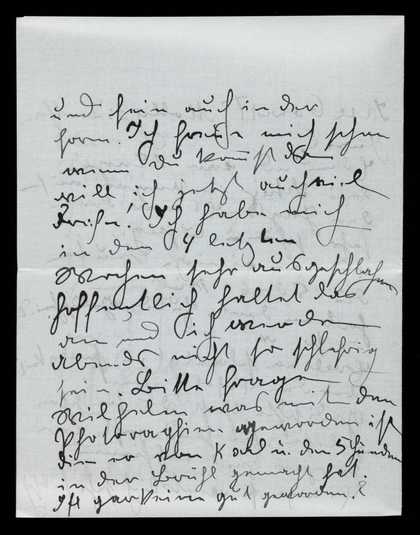 und fein auch in der
Form. Ich freue mich schon
wenn Du kommst dann
will ich jetzt auch viel
Ich habe mich
in den 4 letzten
Wochen sehr ausgeschlafen
hoffentlich haltet das
an und ich werde
abends nicht so schläfrig
sein. Bitte frage
Wilhelm was mit den
Photographien geworden ist
die er von Karl u. den
in der gemacht hat.
Ist gar keine gut geworden?